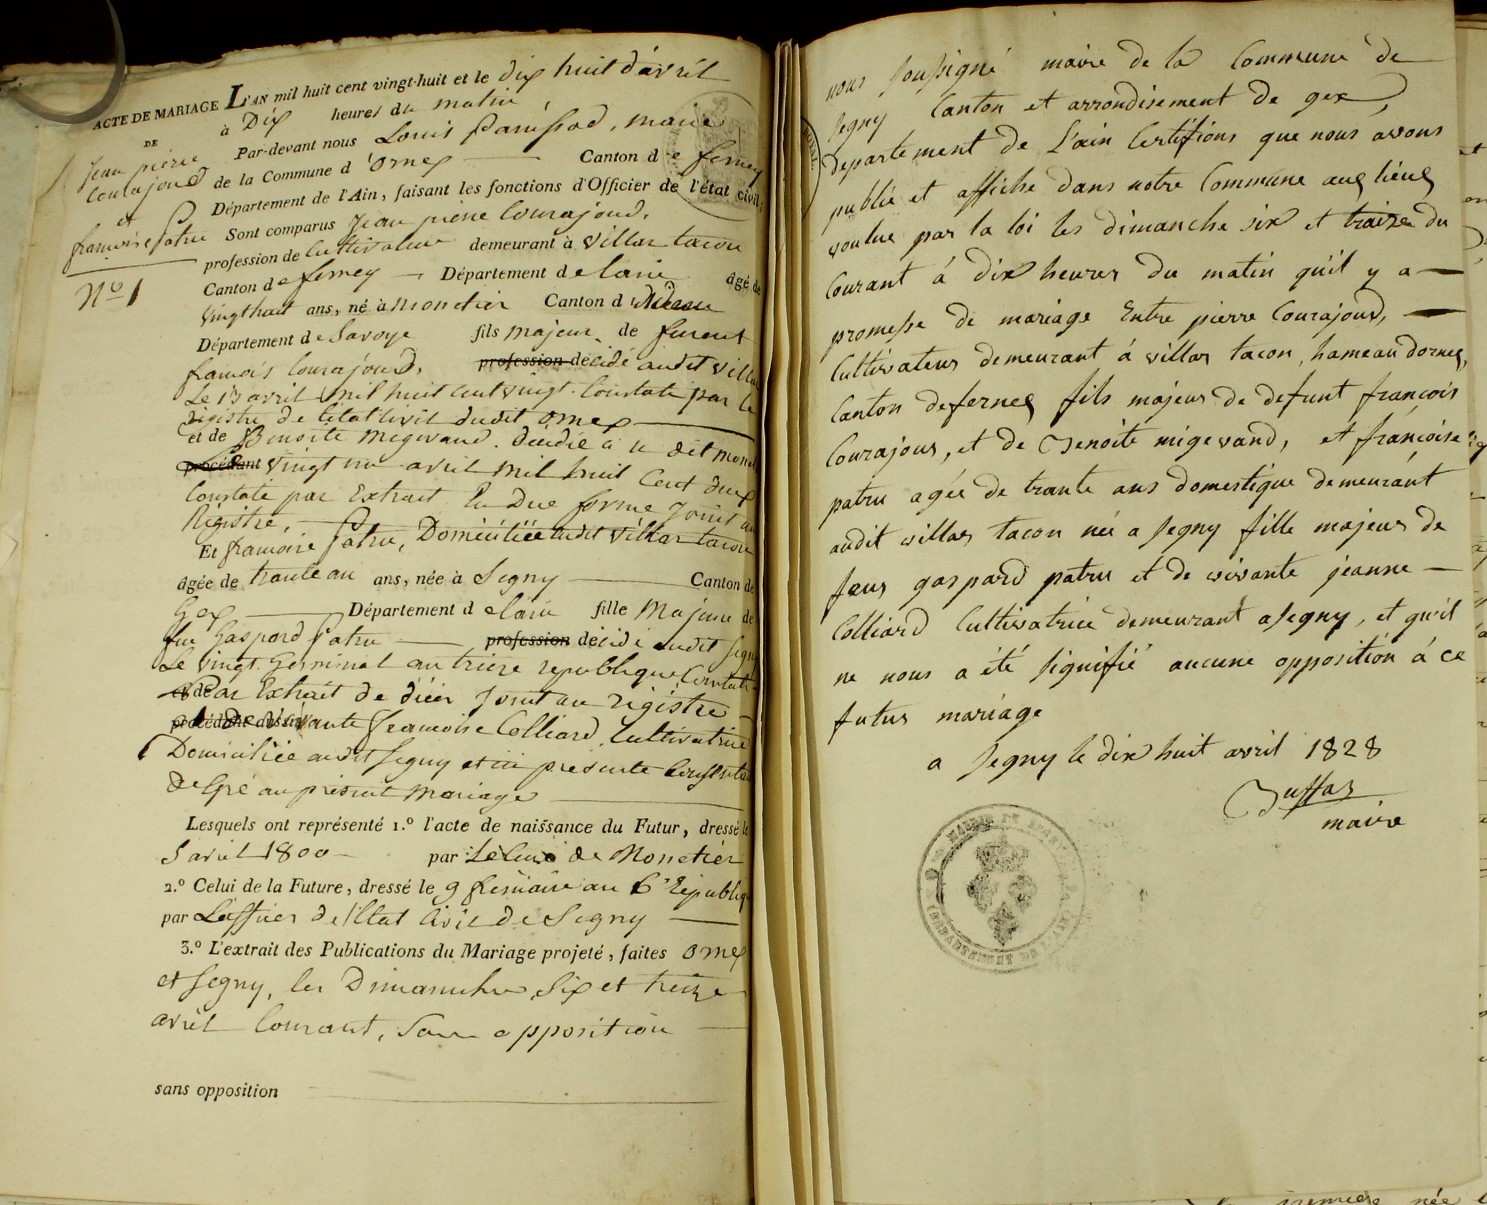 ACTE DE MARIAGE L'AN mil huit cent vingt-huit et le dix huit d'avril
à Dix heures du matin
DE
Jean pierre
Courajoud
et
françoise patru
N.º 1
Par-devant nous Louis panissod, maire
de la Commune d'ornex Canton de ferney
Département de l'Ain, faisant les fonctions d'Officier de l'état civil;
Sont comparus Jean pierre Courajoud,
profession de Cultivateur demeurant à villar tacon
Canton de ferney Département de lain âgé de
vingthuit ans, né à monetier Canton d
Département de Savoye fils majeur de
francois Courajoud, profession décidé audit villar
Le 13 avril mil huit cent vingt. Constaté par le
registre de l'état civil dudit ornex
et de Benoite migevand. décidée à
procédant vingt un avril mil huit Cent
Constaté par Extrait En Due forme joint au
Régistre,
Et francoise patru, Domiciliée audit villar tacon
âgée de trante ans, née à Segny Canton de
Gex Département de lain fille majeure de
feu Gaspard patru profession décidé audit Segny
Le vingt Germinal an treize republique, Constaté
et de par Extrait de décès joint au régistre
procédant de vivante Jeanne Colliard, Cultivatrice
Domiciliée audit Segny et ici présente
de gré au présent mariage
Lesquels ont représenté 1.º l'acte de naissance du Futur, dressé le
5 avril 1800 par Le Curé de Monetier
2.º Celui de la Future, dressé le 9 frimaire an 6e République
par L'officier de l'Etat Civil de Segny
3.º L'extrait des Publications du Mariage projeté, faites ornex
et Segny, les Dimanche Six et treize
avril Courant, Sans opposition
sans opposition
nous soussigné maire de la Commune de
Segny Canton et arrondisement de gex,
departement de L'ain Certifions que nous avons
publié et affiché dans notre Commune aux lieux
voulue par la loi les dimanche six et traize du
Courant à dix heures du matin qu'il y a
promesse de mariage Entre pierre Courajoud,
Cultivateur demeurant à villar tacon, hameau dornex,
Canton de fernex fils majeur de defunt françois
Courajous, et de Benoite migevand, et françoise
patru agée de trante ans domestique demeurant
audit villar tacon née a Segny fille majeur de
feus gaspard patru et de vivante jeanne
Colliard Cultivatrice demeurant a Segny, et qu'il
ne nous a été signifié aucune opposition à ce
futur mariage
a Segny le dix huit avril 1828
Buffaz
maire